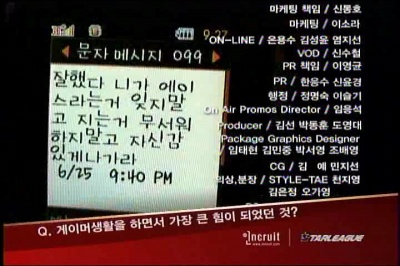 9:27
문자메시지 099
잘했다 니가 에이
스라는거 잊지말
고 지는거 무서워
하지말고 자신감
있게나가라
6/25 9:40 PM
마케팅 책임 / 신동호
마케팅 / 이소라
ON-LINE / 은용수 김성윤 염지선
VOD / 신수철
PR 책임 / 이영균
PR / 한응수 신윤경
행정 / 정명숙 이슬기
On Air Promos Director / 임풍석
Producer / 김선 박동훈 도영대
Package Graphics Designer
/ 임태현 김민중 박서영 조배영
CG / 김 예 민지선
의상,분장 / STYLE-TAE 천지영
김은정 오가영
Q. 게이머생활을 하면서 가장 큰 힘이 되었던 것?
incruit
www.incruit.com
STARLEAGUE